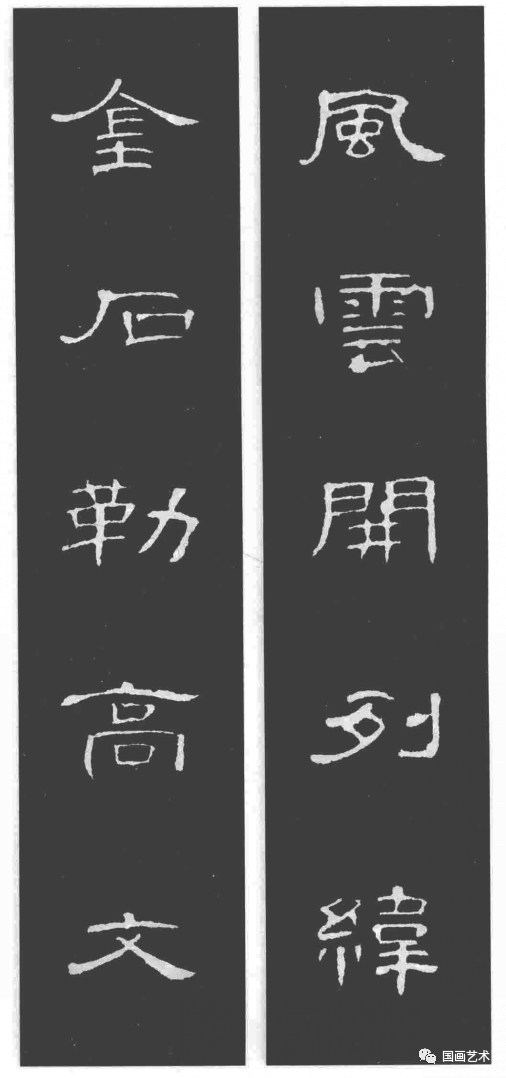 風雲開列緯
金石勒高文
国画艺术